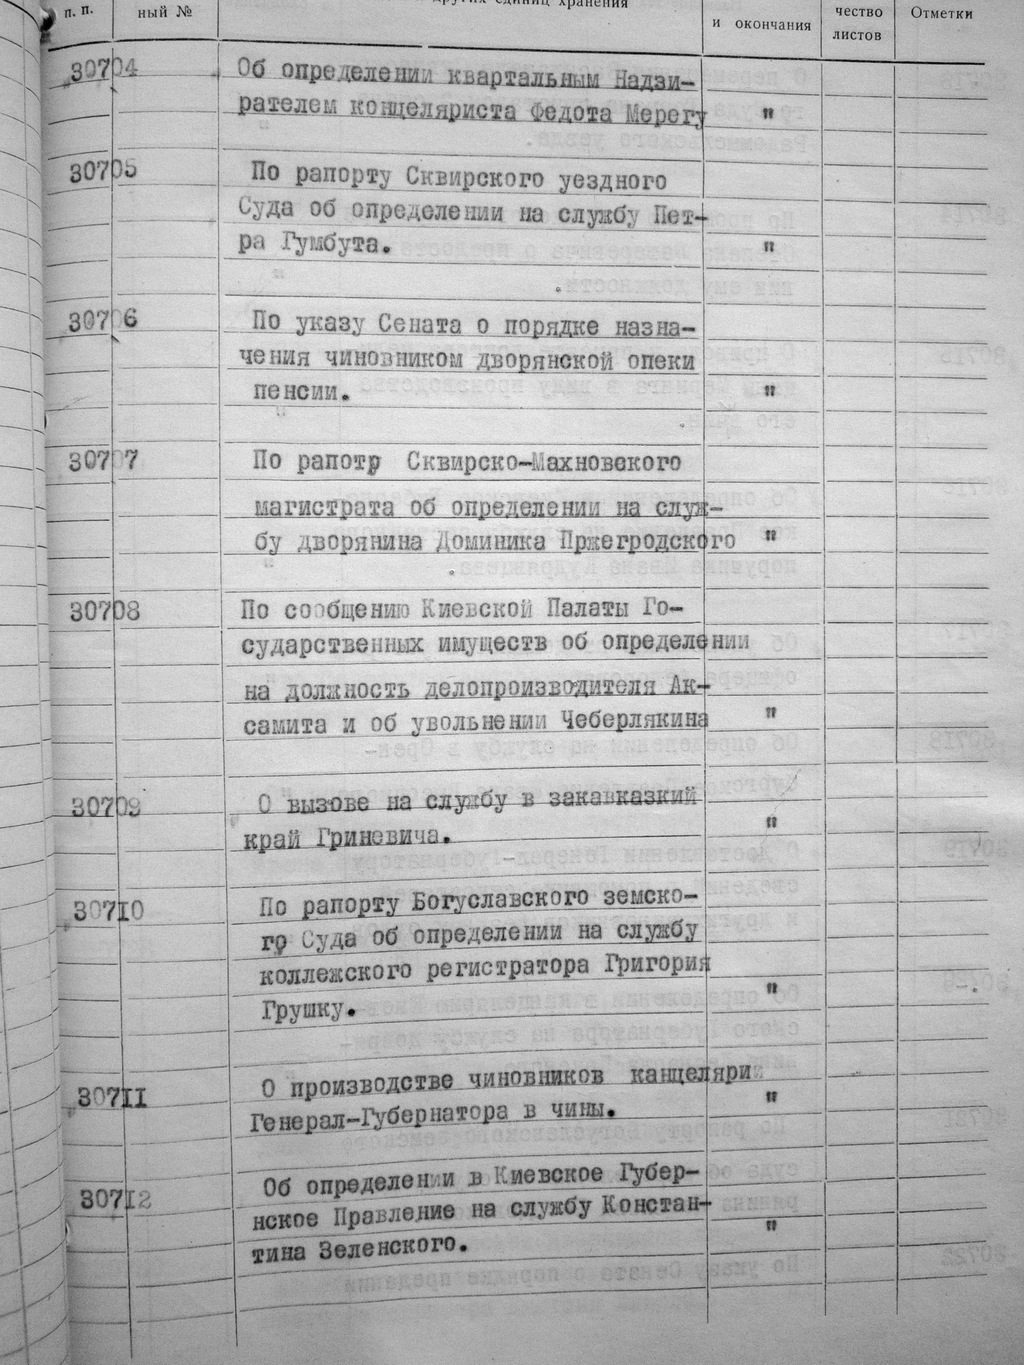 п. п. ный № других единиц хранения и окончания чество листов Отметки
30704 Об определении квартальным Надзи-
рателем концеляриста Федота Мерегу "
30705 По рапорту Сквирского уездного
Суда об определении на службу Пет-
ра Гумбута. "
30706 По указу Сената о порядке назна-
чения чиновником дворянской опеки
пенсии. "
30707 По рапотр Сквирско-Махновского
магистрата об определении на служ-
бу дворянина Доминика Пржегродского "
30708 По сообщению Киевской Палаты Го-
сударственных имуществ об определении
на должность делопроизводителя Ак-
самита и об увольнении Чеберлякина "
30709 О вызове на службу в закавказкий
край Гриневича. "
30710 По рапорту Богуславского земско-
го Суда об определении на службу
коллежского регистратора Григория
Грушку. "
30711 О производстве чиновников канцелярии
Генерал-Губернатора в чины. "
30712 Об определении в Киевское Губер-
нское Правление на службу Констан-
тина Зеленского. "